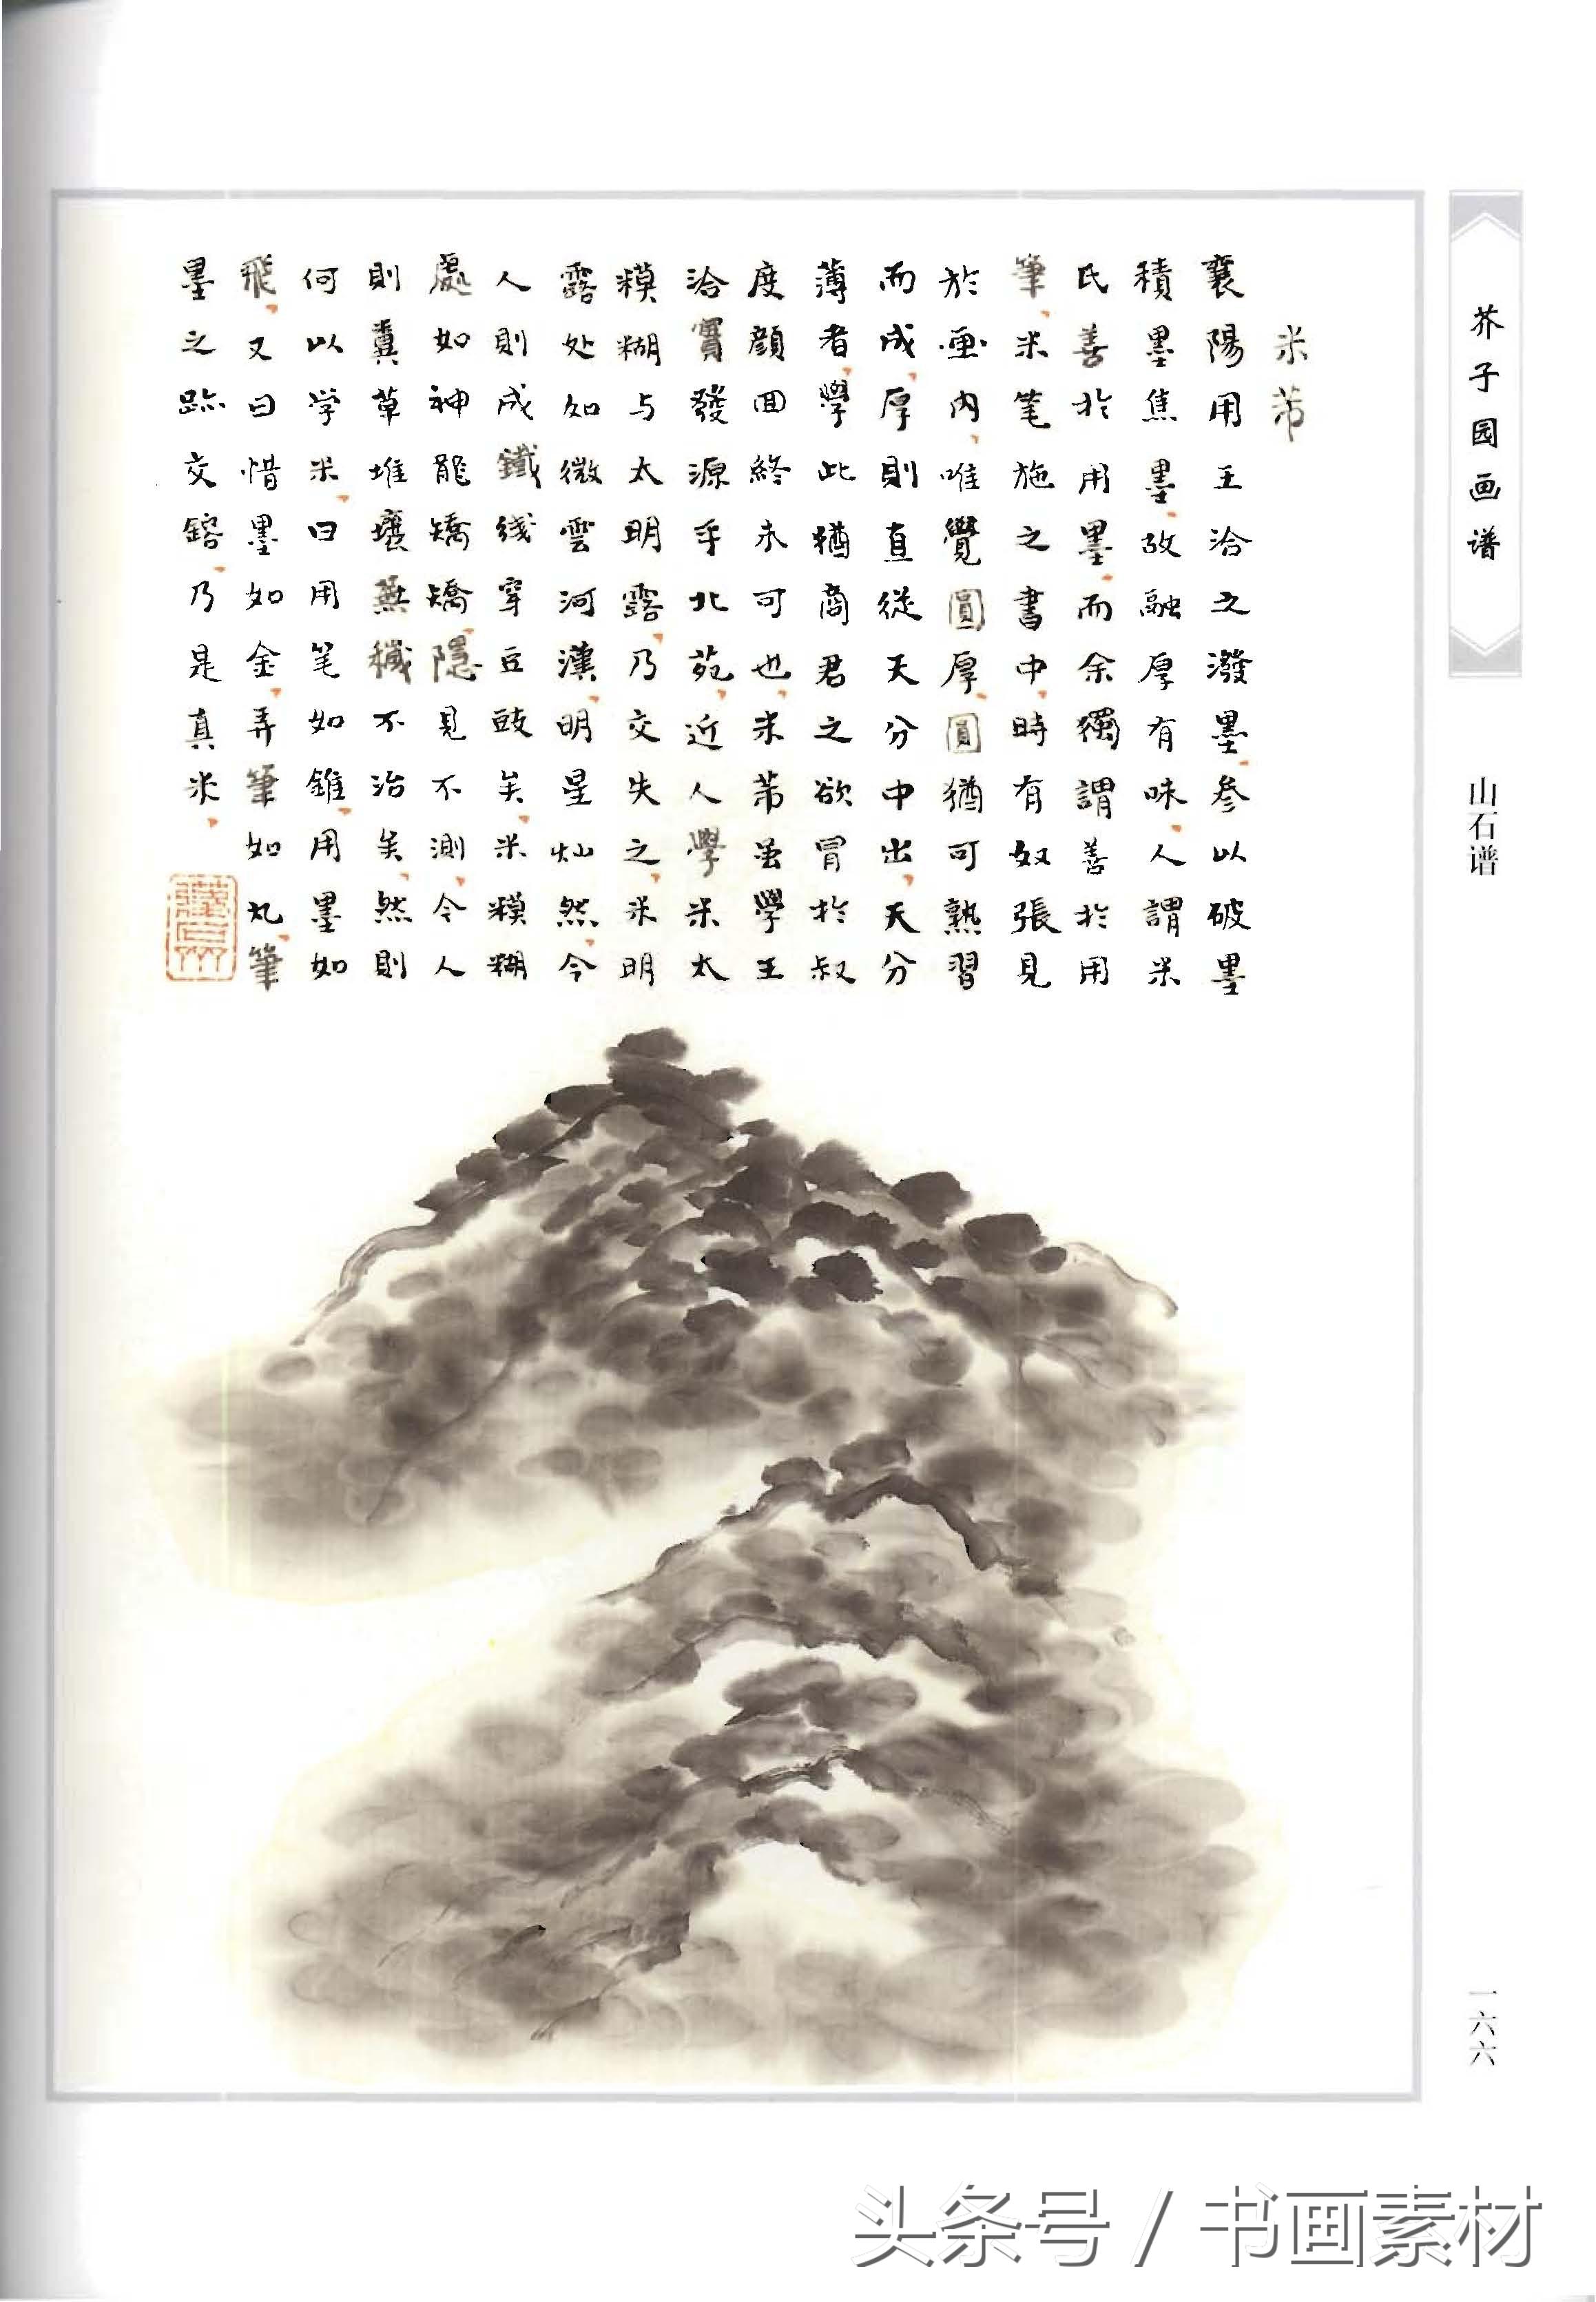 芥子园画谱
山石谱
一六六
米芾
襄陽用王洽之潑墨參以破墨
積墨焦墨故融厚有味人謂米
氏善於用墨而余獨謂善於用
筆米笔施之書中時有奴張見
於画内唯覺圓厚圓猶可熟習
而成厚則直從天分中出天分
薄者學此猶商君之欲冒於叔
度顔回終未可也米芾虽學王
洽實發源乎北苑近人學米太
糢糊与太明露乃交失之米明
露处如微雲河漢明星灿然今
人則成鐵线穿豆豉矣米糢糊
處如神龍矯矯隱見不測令人
則糞草堆壤蕪穢不治矣然則
何以学米曰用笔如錐用墨如
飛又曰惜墨如金弄筆如丸筆
墨之跡交鎔乃是真米
头条号 / 书画素材